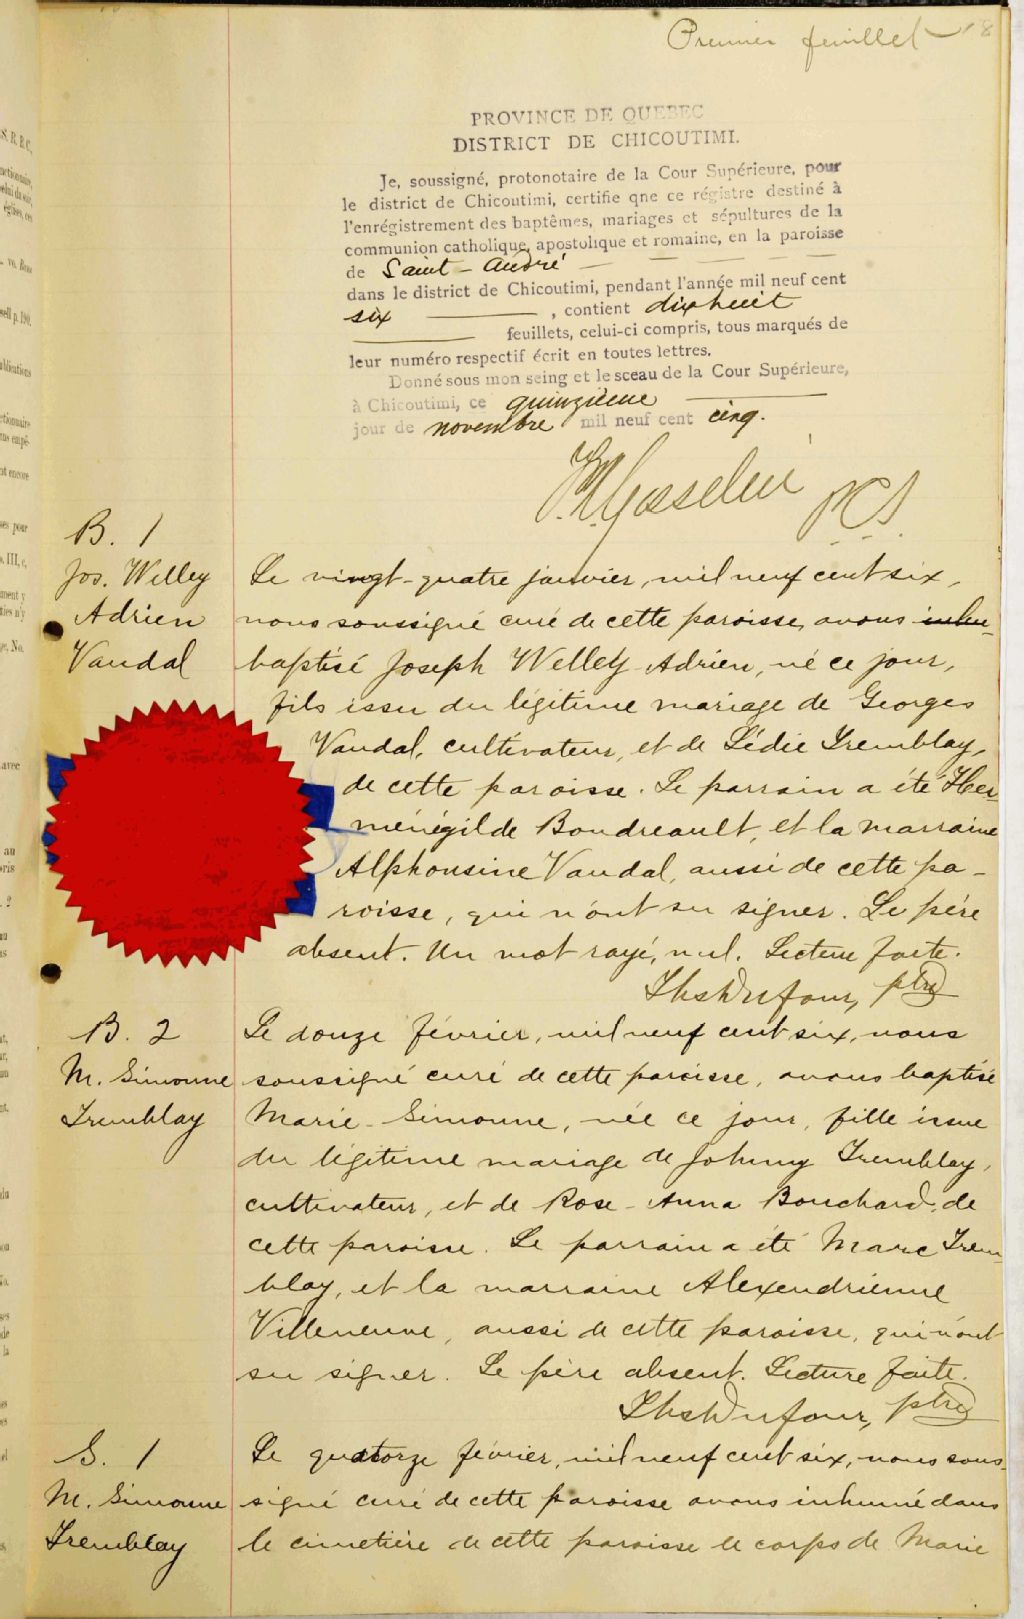 Premier feuillet 18
PROVINCE DE QUEBEC
DISTRICT DE CHICOUTIMI.
Je, soussigné, protonotaire de la Cour Supérieure, pour
le district de Chicoutimi, certifie qne ce régistre destiné à
l'enrégistrement des baptêmes, mariages et sépultures de la
communion catholique, apostolique et romaine, en la paroisse
de Saint-André
dans le district de Chicoutimi, pendant l'année mil neuf cent
six , contient dix huit
feuillets, celui-ci compris, tous marqués de
leur numéro respectif écrit en toutes lettres.
Donné sous mon seing et le sceau de la Cour Supérieure,
à Chicoutimi, ce quinzième
jour de novembre mil neuf cent cinq.
P.C.S.
B. 1
Jos. Welley
Adrien
Vandal
Le vingt-quatre janvier, mil neuf cent six,
nous soussigné curé de cette paroisse, avons inhu-
baptisé Joseph Welley Adrien, né ce jour,
fils issu du légitime mariage de Georges
Vandal, cultivateur, et de Lédie Tremblay,
de cette paroisse. Le parrain a été Her-
ménégilde Boudreault, et la marraine
Alphonsine Vandal, aussi de cette pa-
roisse, qui n'ont su signer. Le père
absent. Un mot rayé, nul. Lecture faite.
Ths Dufour, ptre
B. 2
M. Simonne
Tremblay
Le douze février, mil neuf cent six, nous
soussigné curé de cette paroisse, avons baptisé
Marie-Simonne, née ce jour, fille issue
du légitime mariage de Johnny Tremblay,
cultivateur, et de Rose-Anna Bouchard, de
cette paroisse. Le parrain a été Marc Trem-
blay, et la marraine Alexendrienne
Villeneuve, aussi de cette paroisse, qui n'ont
su signer. Le père absent. Lecture faite.
Ths Dufour, ptre
S. 1
M. Simonne
Tremblay
Le quatorze février, mil neuf cent six, nous sous-
signé curé de cette paroisse avons inhumé dans
le cimetière de cette paroisse le corps de Marie